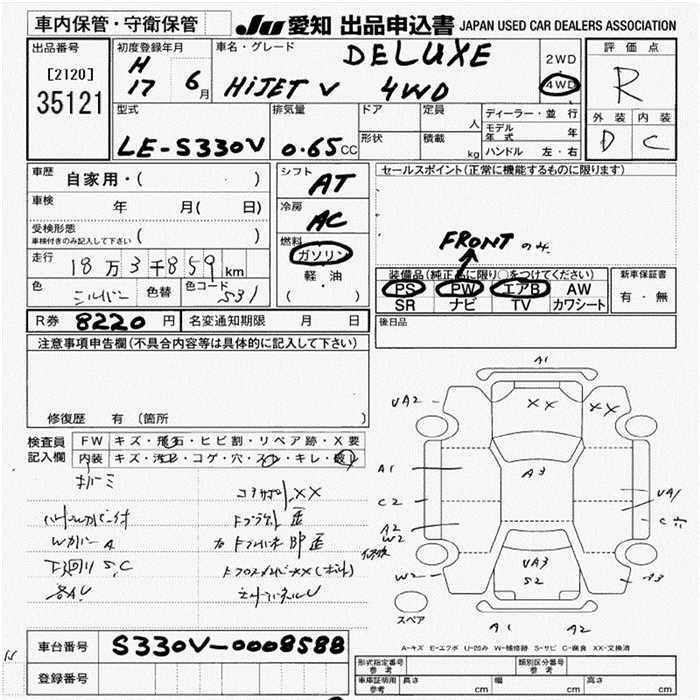 車内保管・守衛保管
JU 愛知 出品申込書 JAPAN USED CAR DEALERS ASSOCIATION
出品番号
[2120]
35121
初度登録年月
H
17 6月
車名・グレード
DELUXE
HiJET V 4WD
2WD
4WD
評価点
R
外装 内装
D C
型式
LE-S330V
排気量
0.65 CC
ドア
形状
定員
人
積載
kg
ディーラー・並行
モデル年式 年
ハンドル 左・右
車歴
自家用・( )
車検
年 月( 日)
受検形態
車検付きのみ記入して下さい ( )
走行
18万3千859 km
色
シルバー 色替
色コード
S31
シフト
AT
冷房
AC
燃料
ガソリン
軽・油
(・ )
セールスポイント(正常に機能するものに限ります)
FRONT のみ
装備品(純正品に限り○をつけてください)
PS PW エアB AW
SR ナビ TV カワシート
新車保証書
有・無
R券 8220 円
名変通知期限 月 日
後日品
注意事項申告欄(不具合内容等は具体的に記入して下さい)
修復歴 有 (箇所 )
検査員
記入欄
FW キズ・飛石・ヒビ割・リペア跡・X要
内装 キズ・汚れ・コゲ・穴・スレ・キレ・破レ
コアサポートXX
Wカバー A
下回り S,C
各AU
A1
UA2
XX
XX
A1
A3
C2
UA1
A2
W2
C
W2
UA3
S2
A3
A1
A2
スペア
A-キズ E-エクボ U-凹み W-補修跡 S-サビ C-腐食 XX-交換済
車台番号 S330V-0008588
登録番号
形式指定番号
参考
類別区分番号
参考
車庫証明用
参考
長さ cm
幅 cm
高さ cm